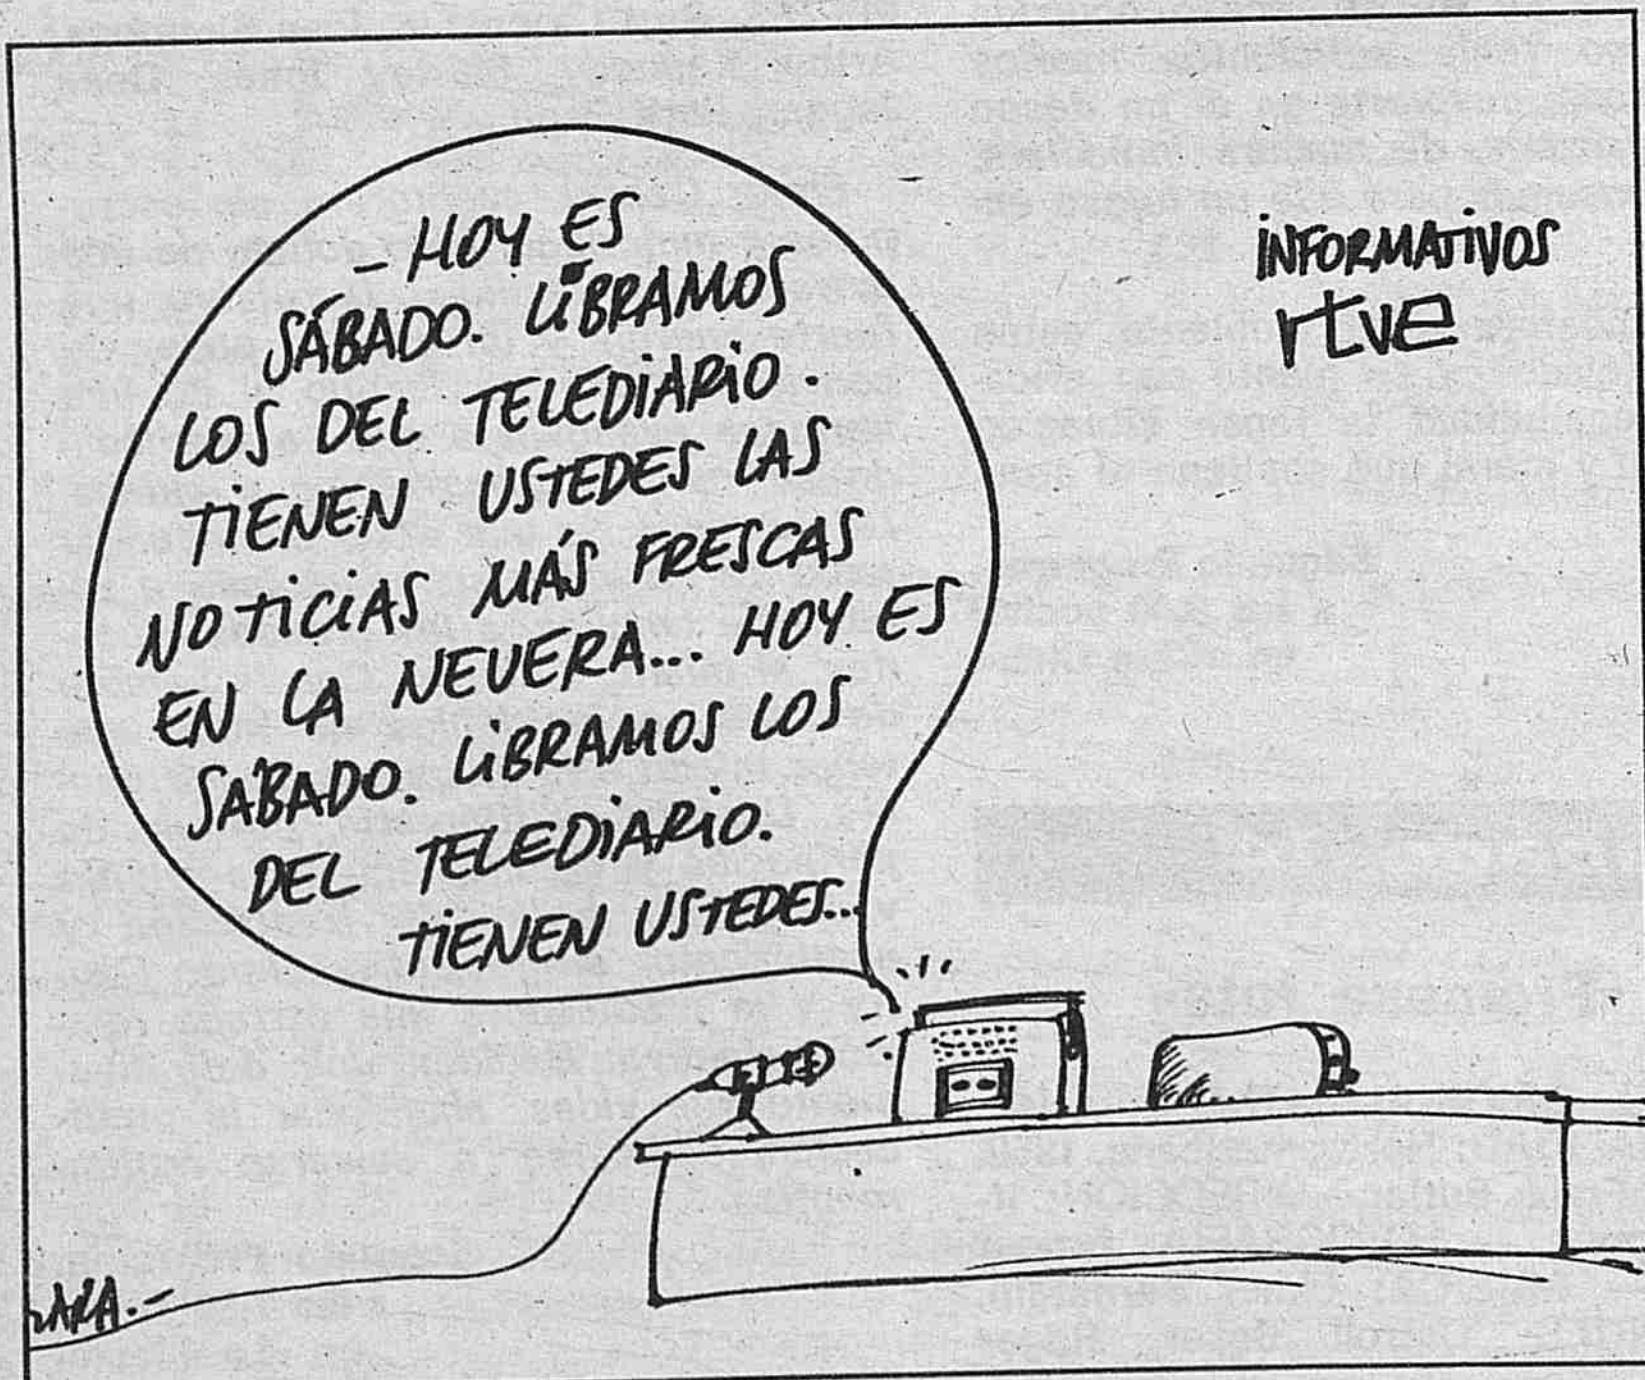 - HOY ES
SÁBADO. LIBRAMOS
LOS DEL TELEDIARIO.
TIENEN USTEDES LAS
NOTICIAS MÁS FRESCAS
EN LA NEVERA... HOY ES
SÁBADO. LIBRAMOS LOS
DEL TELEDIARIO.
TIENEN USTEDES...
INFORMATIVOS
rtve